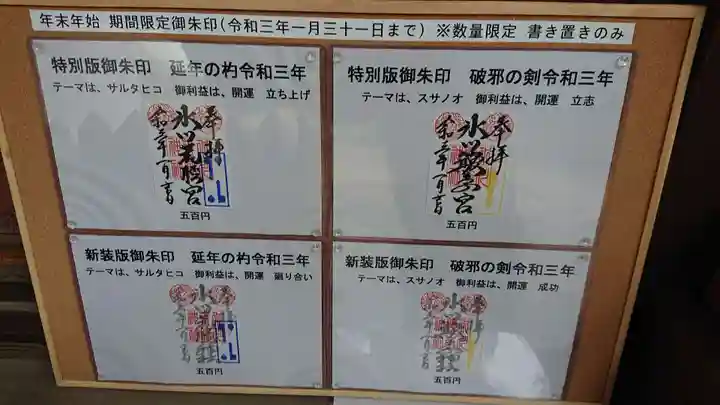 年末年始 期間限定御朱印(令和三年一月三十一日まで) ※数量限定 書き置きのみ
特別版御朱印 延年の杓令和三年
テーマは、サルタヒコ 御利益は、開運 立ち上げ
奉拝
令和三年一月吉日
五百円
特別版御朱印 破邪の剣令和三年
テーマは、スサノオ 御利益は、開運 立志
奉拝
令和三年一月吉日
五百円
新装版御朱印 延年の杓令和三年
テーマは、サルタヒコ 御利益は、開運 廻り合い
奉拝
五百円
新装版御朱印 破邪の剣令和三年
テーマは、スサノオ 御利益は、開運 成功
奉拝
五百円